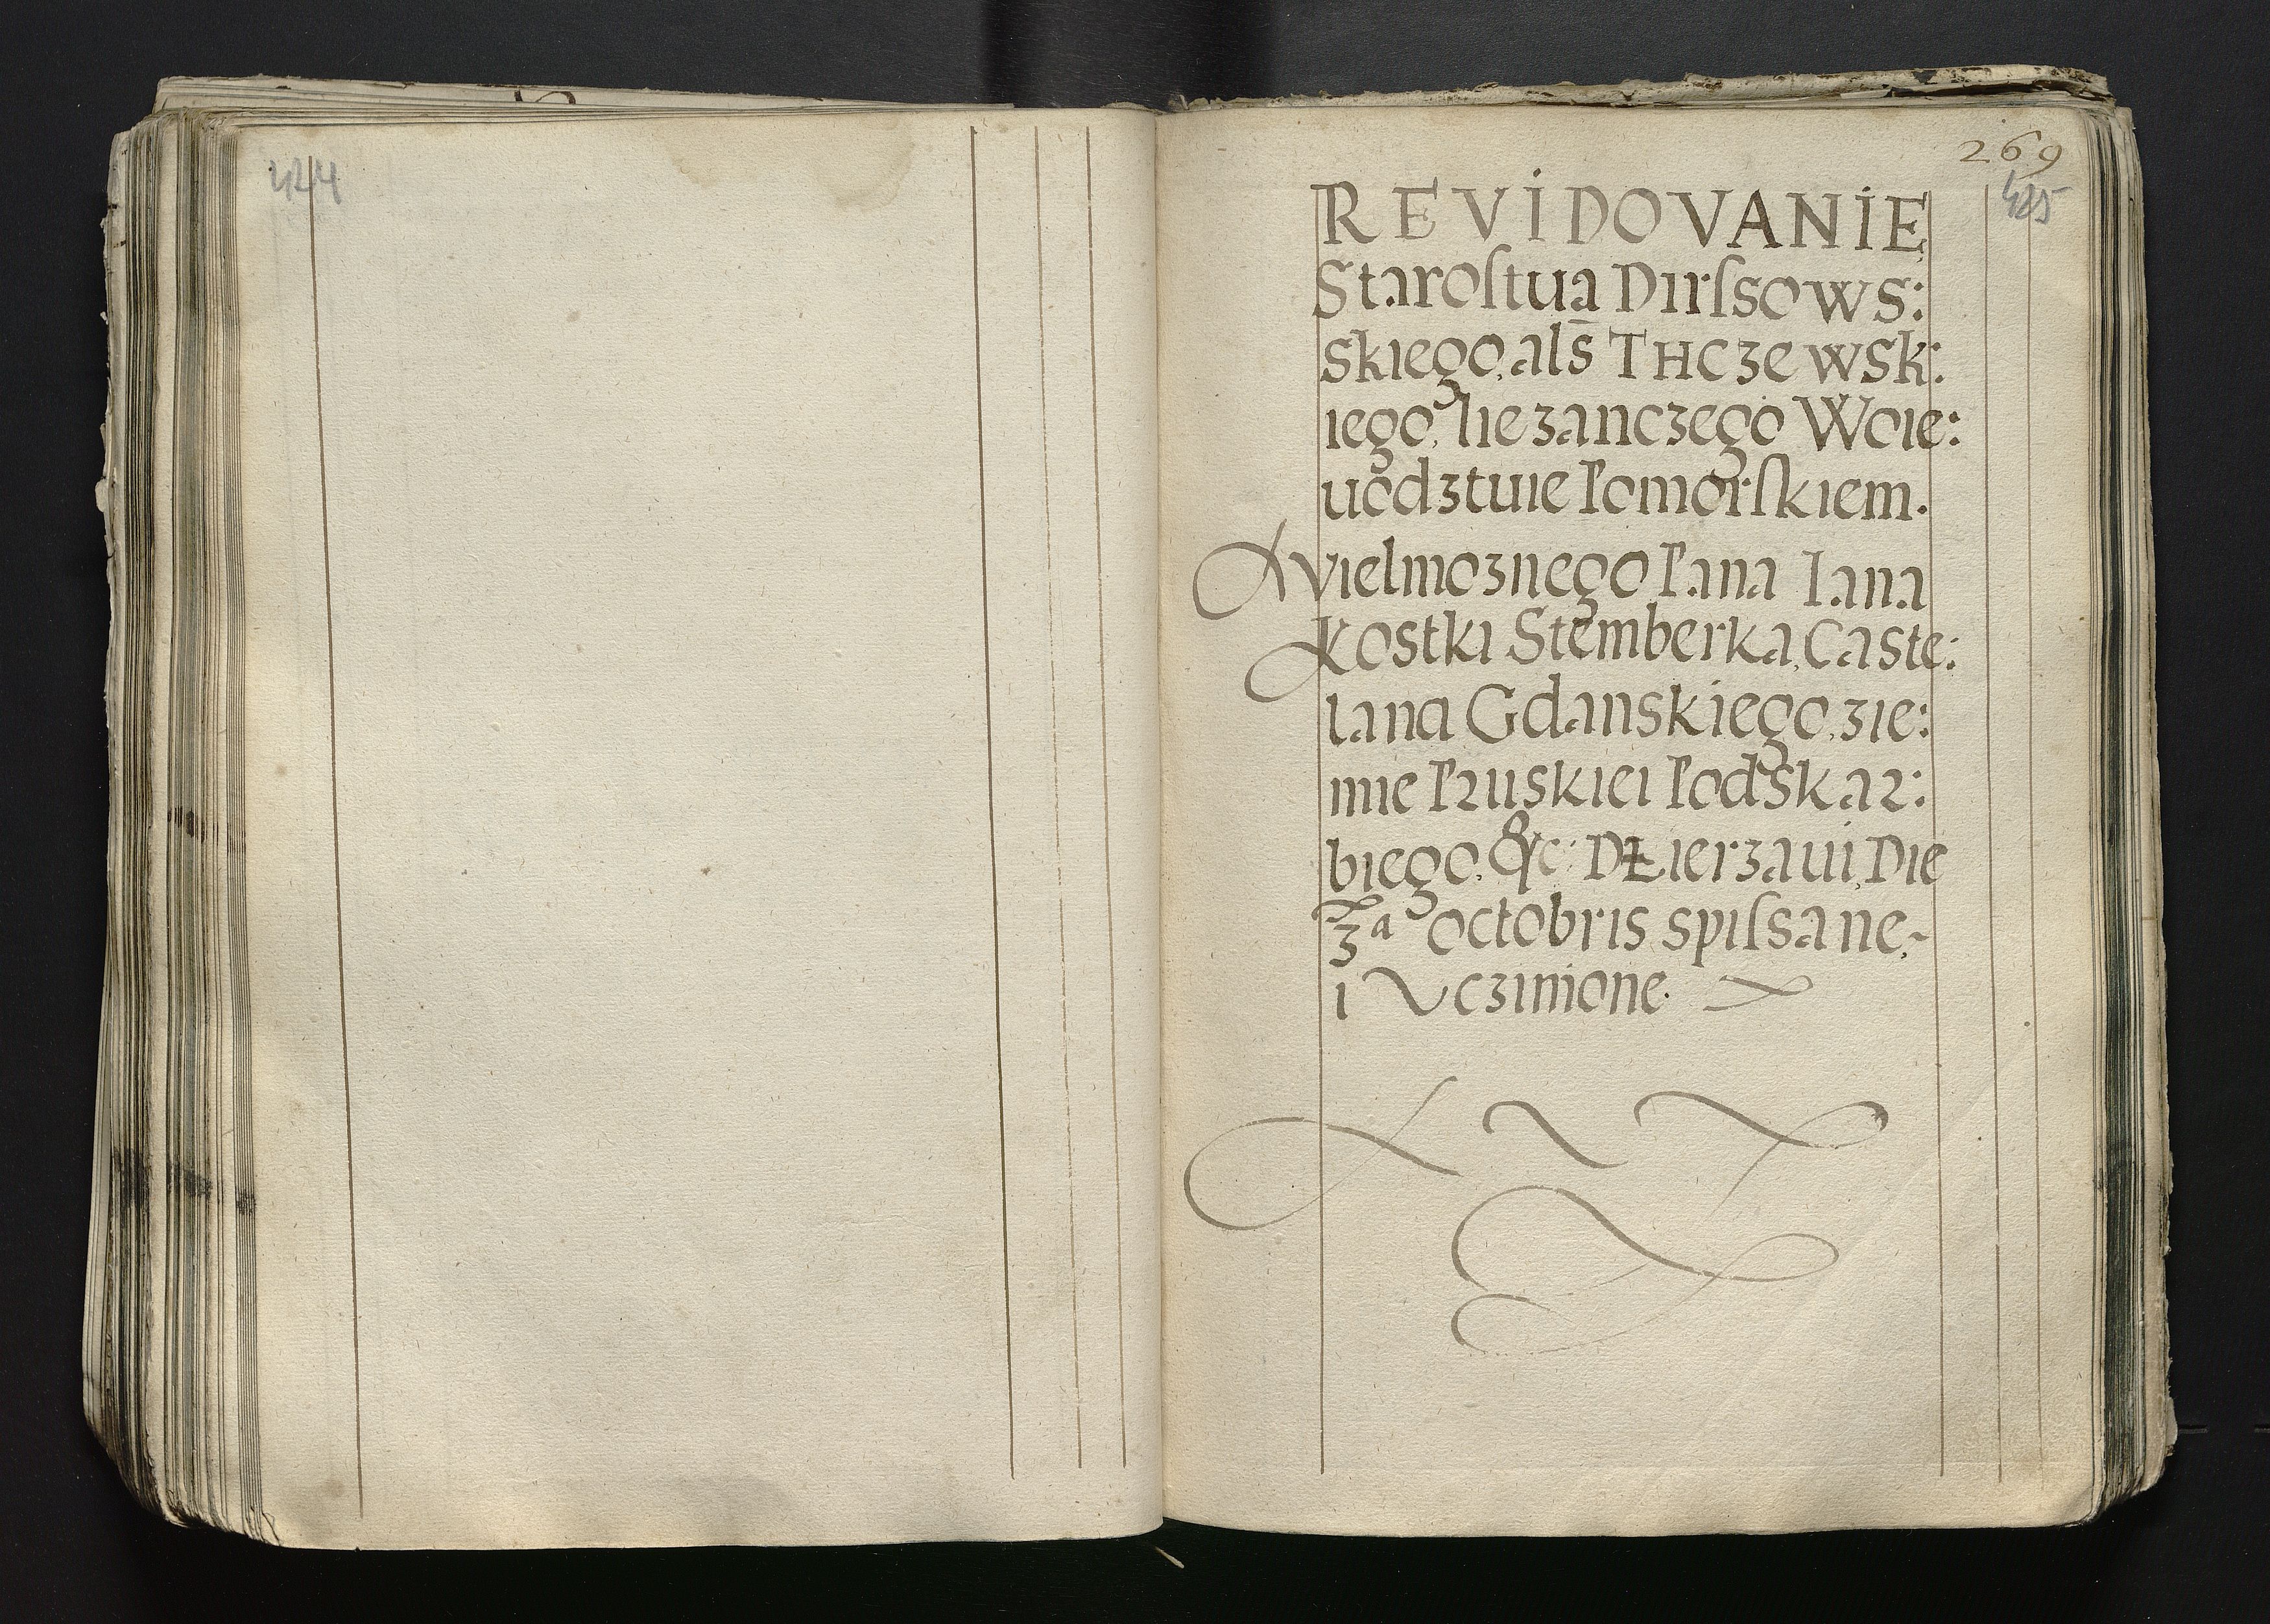 424
269
425
REVIDOVANIE
Staroſtua Dirſsows:
skiego, als̄ THCzewsk:
iego, liezanczego Woie:
uodztuie Pomorſkiem.
Wielmoznego Pana Iana
Kostki Stemberka, Caste:
lana Gdanskiego, zie:
mie Pruskiei Podskar:
biego, &c: Dzierzaui, Die
3a octobris spiſsane,
i Uczinione.